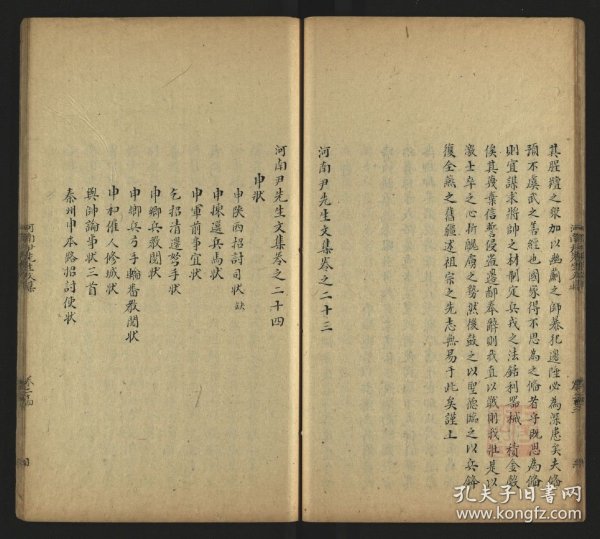 其羶獯之眾加以幽薊之師暴犯邊陲必為深患矣夫備
預不虞武之善經也國家得不思為之備者乎既思為備
則宜謀求將帥之材制定兵戎之法銛利器械積金穀
俟其幾棄信誓侵盜邊鄙奉辭則我直以戰則我壯是以
激士卒之心折醜虜之勢然後敵之以聖德臨之以兵鋒
復全燕之舊疆述祖宗之先志無易于此矣謹上
河南尹先生文集卷之二十三
河南尹先生文集卷之二十四
申狀
申陝西招討司狀 缺
申揀選兵馬狀
申軍前事宜狀
乞招清邊弩手狀
申鄉兵教閱狀
申鄉兵弓手輪番教閱狀
申和催人修城狀
與師論事狀三首
秦州申本路招討使狀
卷二十四
孔夫子旧书网
www.kongfz.com